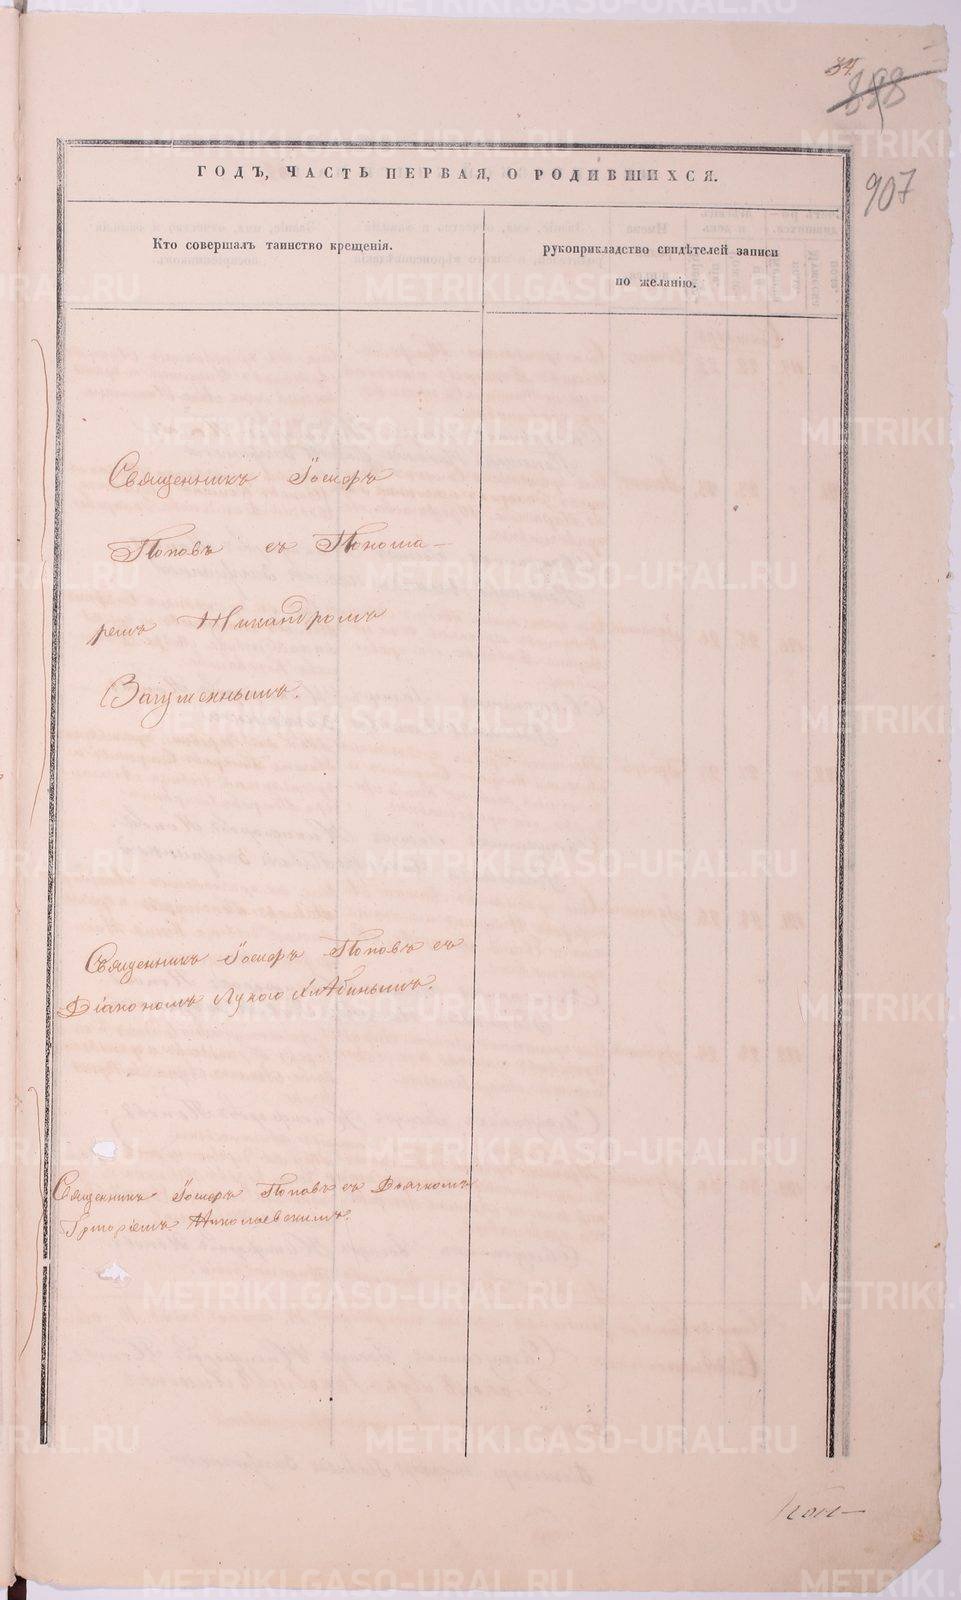 34.
898
907
ГОДЪ, ЧАСТЬ ПЕРВАЯ, О РОДИВШИХСЯ.
Кто совершалъ таинство крещенія.
рукоприкладство свидѣтелей записи
по желанію.
Священникъ Іосифъ
Поповъ съ Понома-
ремъ Никандромъ
Загуменнымъ.
Священникъ Іосифъ Поповъ съ
Діакономъ Лукою
Священникъ Іосифъ Поповъ съ Дьячкомъ
Григоріемъ Николаевскимъ.
METRIKI.GASO-URAL.RU